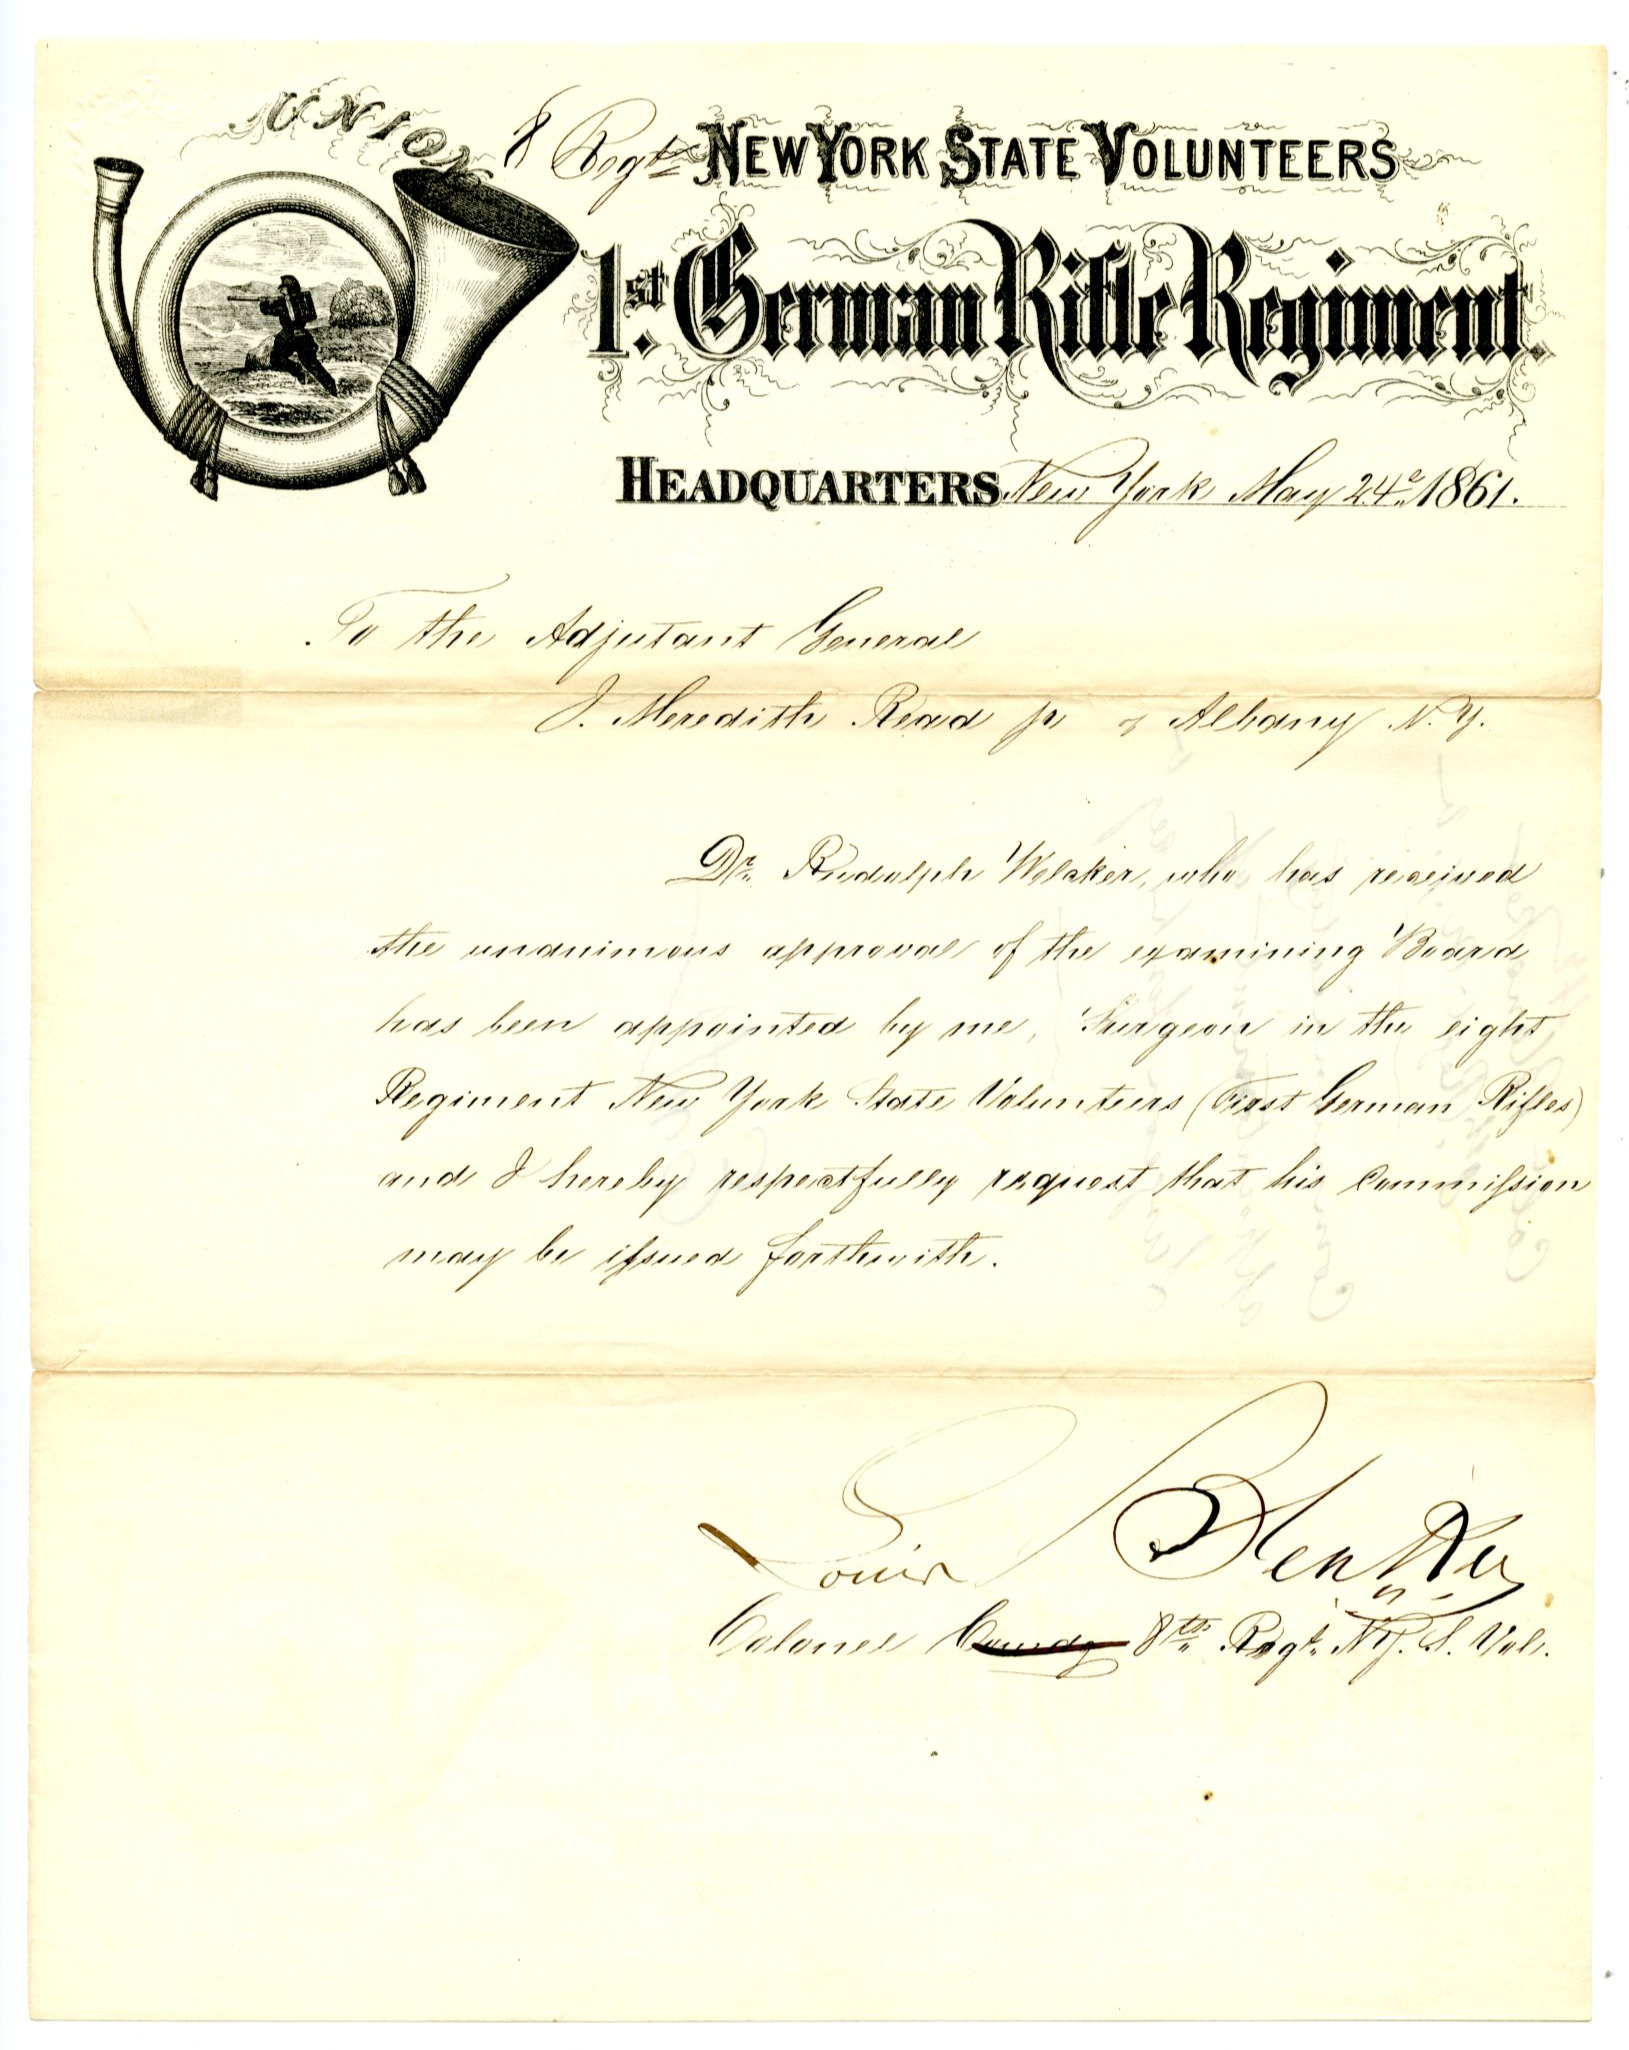 UNION
8 Regt. NEW YORK STATE VOLUNTEERS
1st. German Rifle Regiment.
HEADQUARTERS New York May 24th 1861.
To the Adjutant General
J. Meredith Read jr of Albany N.Y.
Dr. Rudolph Welcker, who has received
the unanimous approval of the examining Board
has been appointed by me, Surgeon in the eight
Regiment New York State Volunteers (First German Rifles)
and I hereby respectfully request that his Commission
may be issued forthwith.
Louis Blenker
Colonel Comdg 8th Regt. N.Y. S. Vol.